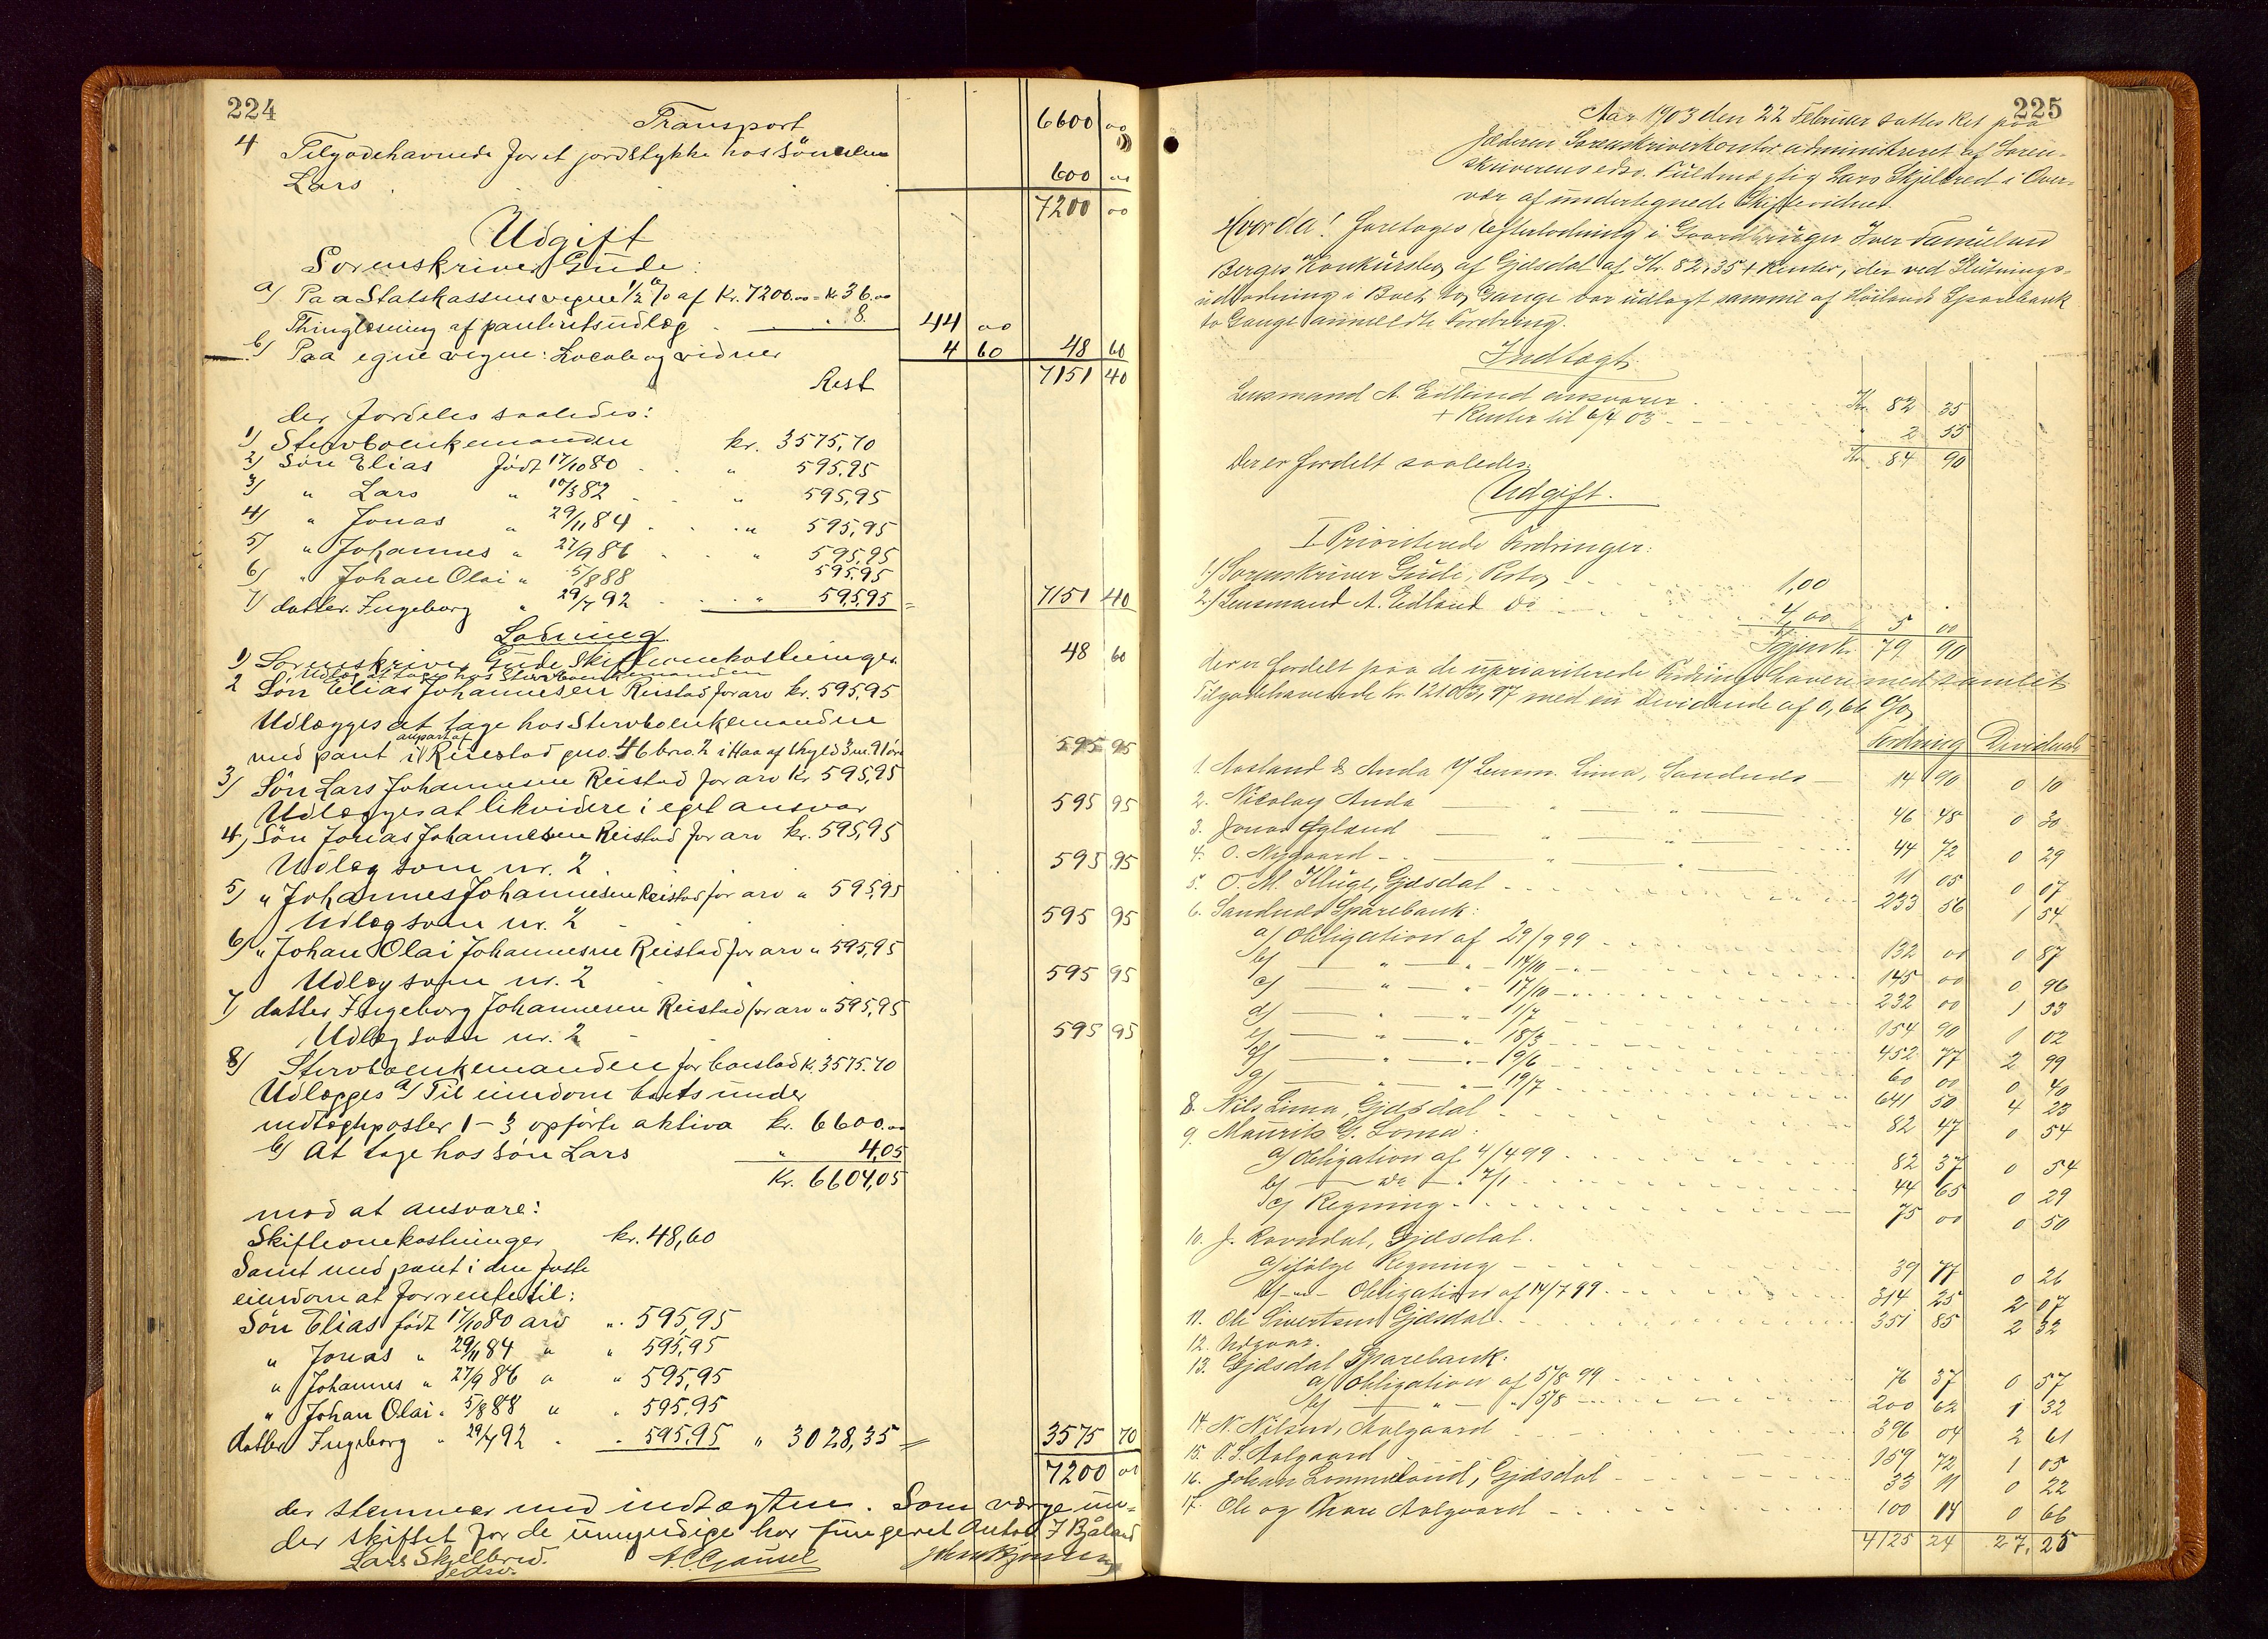 224
Transport 6600 00
4 Tilgodehavende for et jordstykke hos sønnen
Lars 600 00
7200 00
Udgift
Sorenskriver Gude:
a) Paa Statskassens vegne ½ % af Kr. 7200.00 = Kr. 36.00
Thinglæsning af panteretsudlæg " 8. 44 00
b) Paa egne vegne: Locale og vidner 4 60 48 60
Rest 7151 40
der fordeles saaledes:
1) Stervboenkemanden kr. 3575,70
2) Søn Elias født 17/10 80 " 595,95
3) " Lars " 10/3 82 " 595,95
4) " Jonas " 29/11 84 " 595,95
5) " Johannes " 27/9 86 " 595,95
6) " Johan Olai " 5/8 88 595,95
7) datter Ingeborg " 29/7 92 " 595,95 = 7151 40
Lodning
1) Sorenskriver Gude Skifteomkostninger 48 60
Udlæg at tage hos Stervboenkemanden
2 Søn Elias Johannesen Reistad for arv kr. 595,95
Udlægges at tage hos Stervboenkemanden
med pant i anpart af Reiestad gno. 46 brno. 2 i Haa af skyld 3 m. 91 øre 595 95
3) Søn Lars Johannesen Reistad for arv Kr. 595,95
Udlægges at likvidere i eget ansvar 595 95
4) Søn Jonas Johannesen Reistad for arv kr. 595,95
Udlæg som nr. 2 595 95
5) " Johannes Johannesen Reistad for arv " 595,95
Udlæg som nr. 2 595 95
6) " Johan Olai Johannesen Reistad for arv " 595,95
Udlæg som nr. 2 595 95
7) datter Ingeborg Johannesen Reistad for arv " 595,95
Udlæg som nr. 2 595 95
8) Stervboenkemanden for boeslod k. 3575.70
Udlægges a) Til eiendom boets under
indtægtsposter 1-3 opførte aktiva kr. 6600.00
b) At tage hos søn Lars " 4,05
Kr. 6604,05
mod at ansvare:
Skifteomkostninger kr. 48,60
Samt med pant i den faste
eiendom at forrente til:
Søn Elias født 17/10 80 arv " 595,95
" Jonas " 29/11 84 " " 595,95
" Johannes " 27/9 86 " " 595,95
" Johan Olai " 5/8 88 " " 595,95
datter Ingeborg " 29/7 92 " " 595,95 " 3028,35 = 3575 70
7200 00
der stemmer med indtægten. Som værge un-
der skiftet for de umyndige har fungeret Anton J Bjåland
Lars Skjelbred
edsv.
225
Aar 1903 den 22 Februar sattes Ret paa
Jæderen Sorenskriverkontor administreret af Soren-
skriverens edsv. Fuldmægtig Lars Skjelbred i Over-
vær af undertegnede Skiftevidner.
Hvorda! Foretoges Efterlodning i Gaardbruger Iver Samuelsen
Berges Konkursbo af Gjesdal af Kr. 82,35 + Renter, der ved Slutnings-
udlodning i Boet var udlagt
to Gange anmeldte Fordring.
Indtægt
Lensmand A. Edland ansvarer Kr. 82 35
+ Renter til 6/4 03 " 2 55
Der er fordelt saaledes: Kr. 84 90
Udgift.
I Prioriterede Fordringer:
1) Sorenskriver Gude, Porto 1,00
2) Lensmand A. Edland Do 4,00 5 00
Igjen kr. 79 90
der er fordelt paa de uprioriterede Fordringshavere med samlet
Tilgodehavende kr. 12103,97 med en Dividende af 0,66 %
Fordring Dividende
1. Aasland & Anda v/ Lensm. Lima, Sandnes 14 90 0 10
2. Nicolay Anda " " 46 48 0 30
3. Jonas Øgland " " 44 72 0 29
4. O. Nygaard " " 11 05 0 07
5. O. M. Kluge, Gjesdal 233 56 1 54
6. Sandnes Sparebank:
a) Obligation af 29/9 99 132 00 0 87
b) " " 14/10 145 00 0 96
c) " " 17/10 232 00 1 53
d) " " 1/7 154 90 1 02
e) " " 18/3 452 77 2 99
f) " " 19/6 60 00 0 40
g) " " 19/7 641 50 4 23
8. Nils Lima, Gjesdal 82 47 0 54
9. Maurits G. Soma:
a) Obligation af 4/4 99 82 37 0 54
b) do " 2/1 44 65 0 29
c) Regning 75 00 0 50
10. J. Ravndal, Gjesdal.
a) ifølge Regning 39 77 0 26
b) -"- Obligation af 14/7 99 314 25 2 07
11. Ole Sivertsen Gjesdal 351 85 2 32
12. Udgaar.
13. Gjesdal Sparebank:
a) Obligation af 5/8 99 76 37 0 57
b) " " 15/8 200 62 1 32
14 N. Nilsen, Aalgaard 396 04 2 61
15. O. S. Aalgaard 159 72 1 05
16. Johan Lommeland, Gjesdal 33 91 0 22
17. Ole og Thore Aalgaard 100 14 0 66
4125 24 27,25